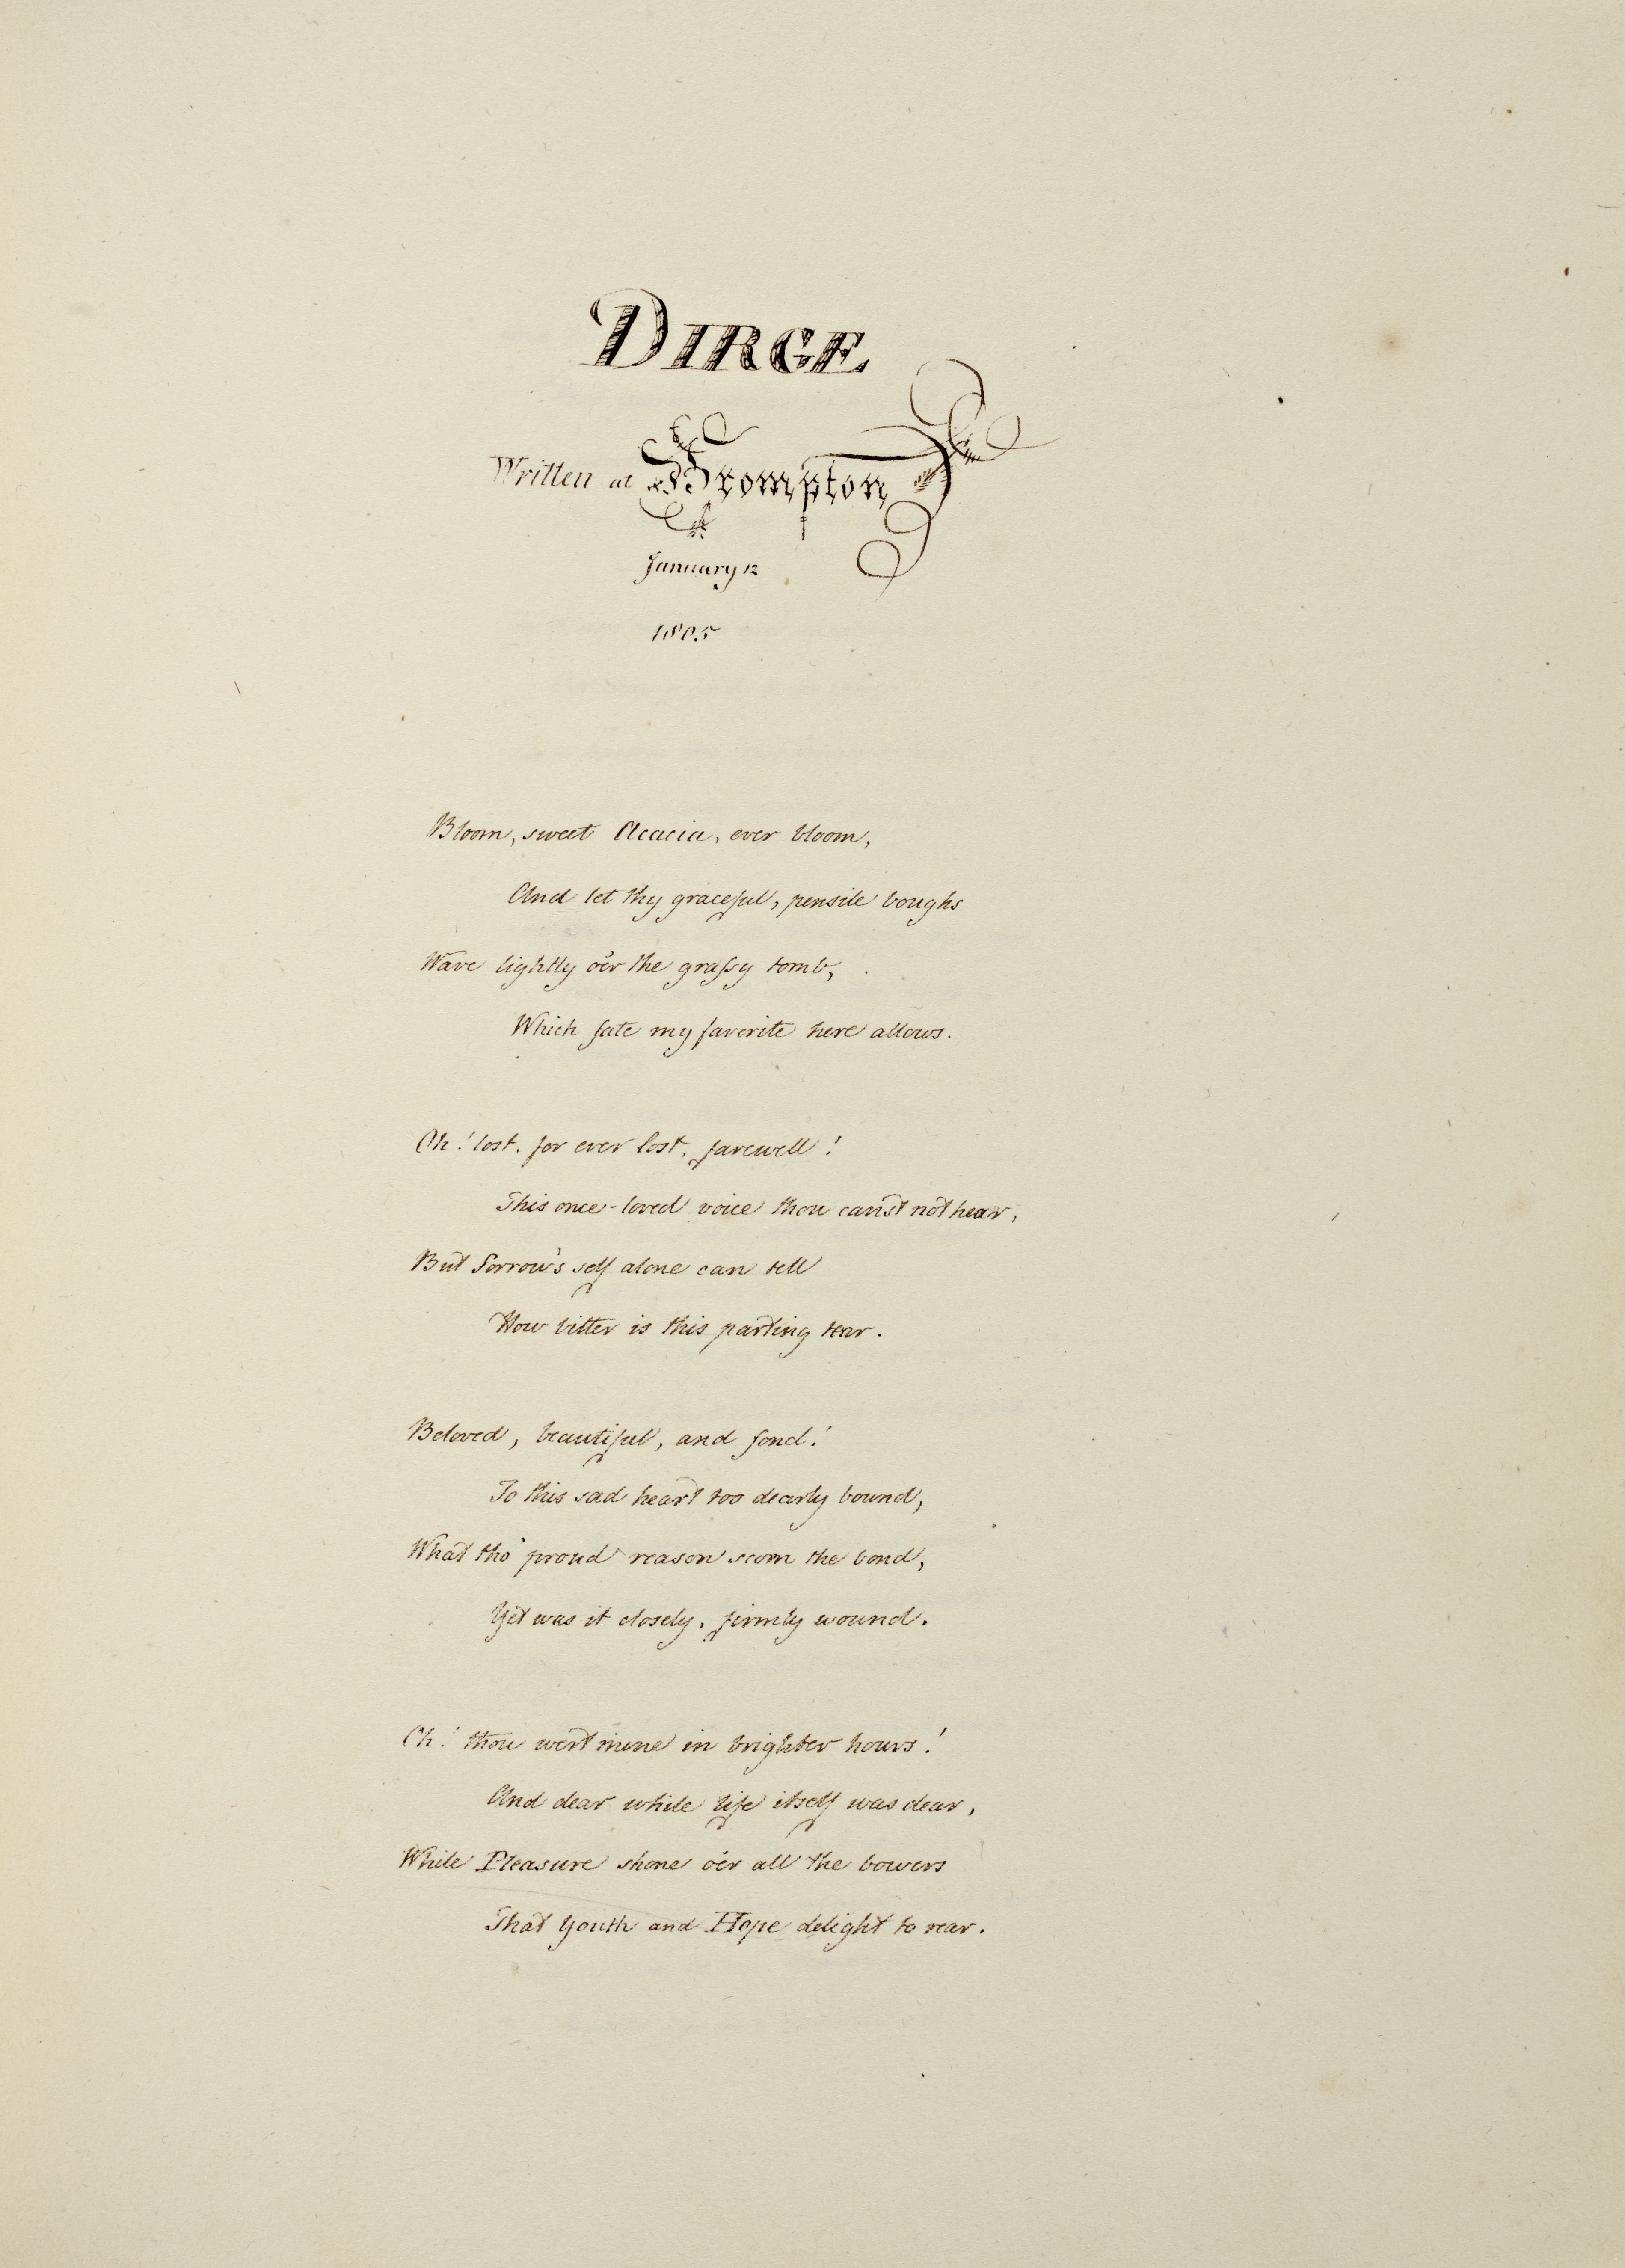 DIRGE
Written at Brompton
January 12
1805
Bloom, sweet Acacia, ever bloom,
And let thy graceful, pensile boughs
Wave lightly o'er the graſsy tomb,
Which fate my favorite here allows.
Oh! lost, for ever lost, farewell!
This once-loved voice thou can'st not hear,
But Sorrow's self alone can tell
How bitter is this parting tear.
Beloved, beautiful, and fond!
To this sad heart too dearly bound,
What tho' proud reason scorn the bond,
Yet was it closely, firmly wound.
Oh! thou wert mine in brighter hours!
And dear while life itself was dear,
While Pleasure shone o'er all the bowers
That Youth and Hope delight to rear.